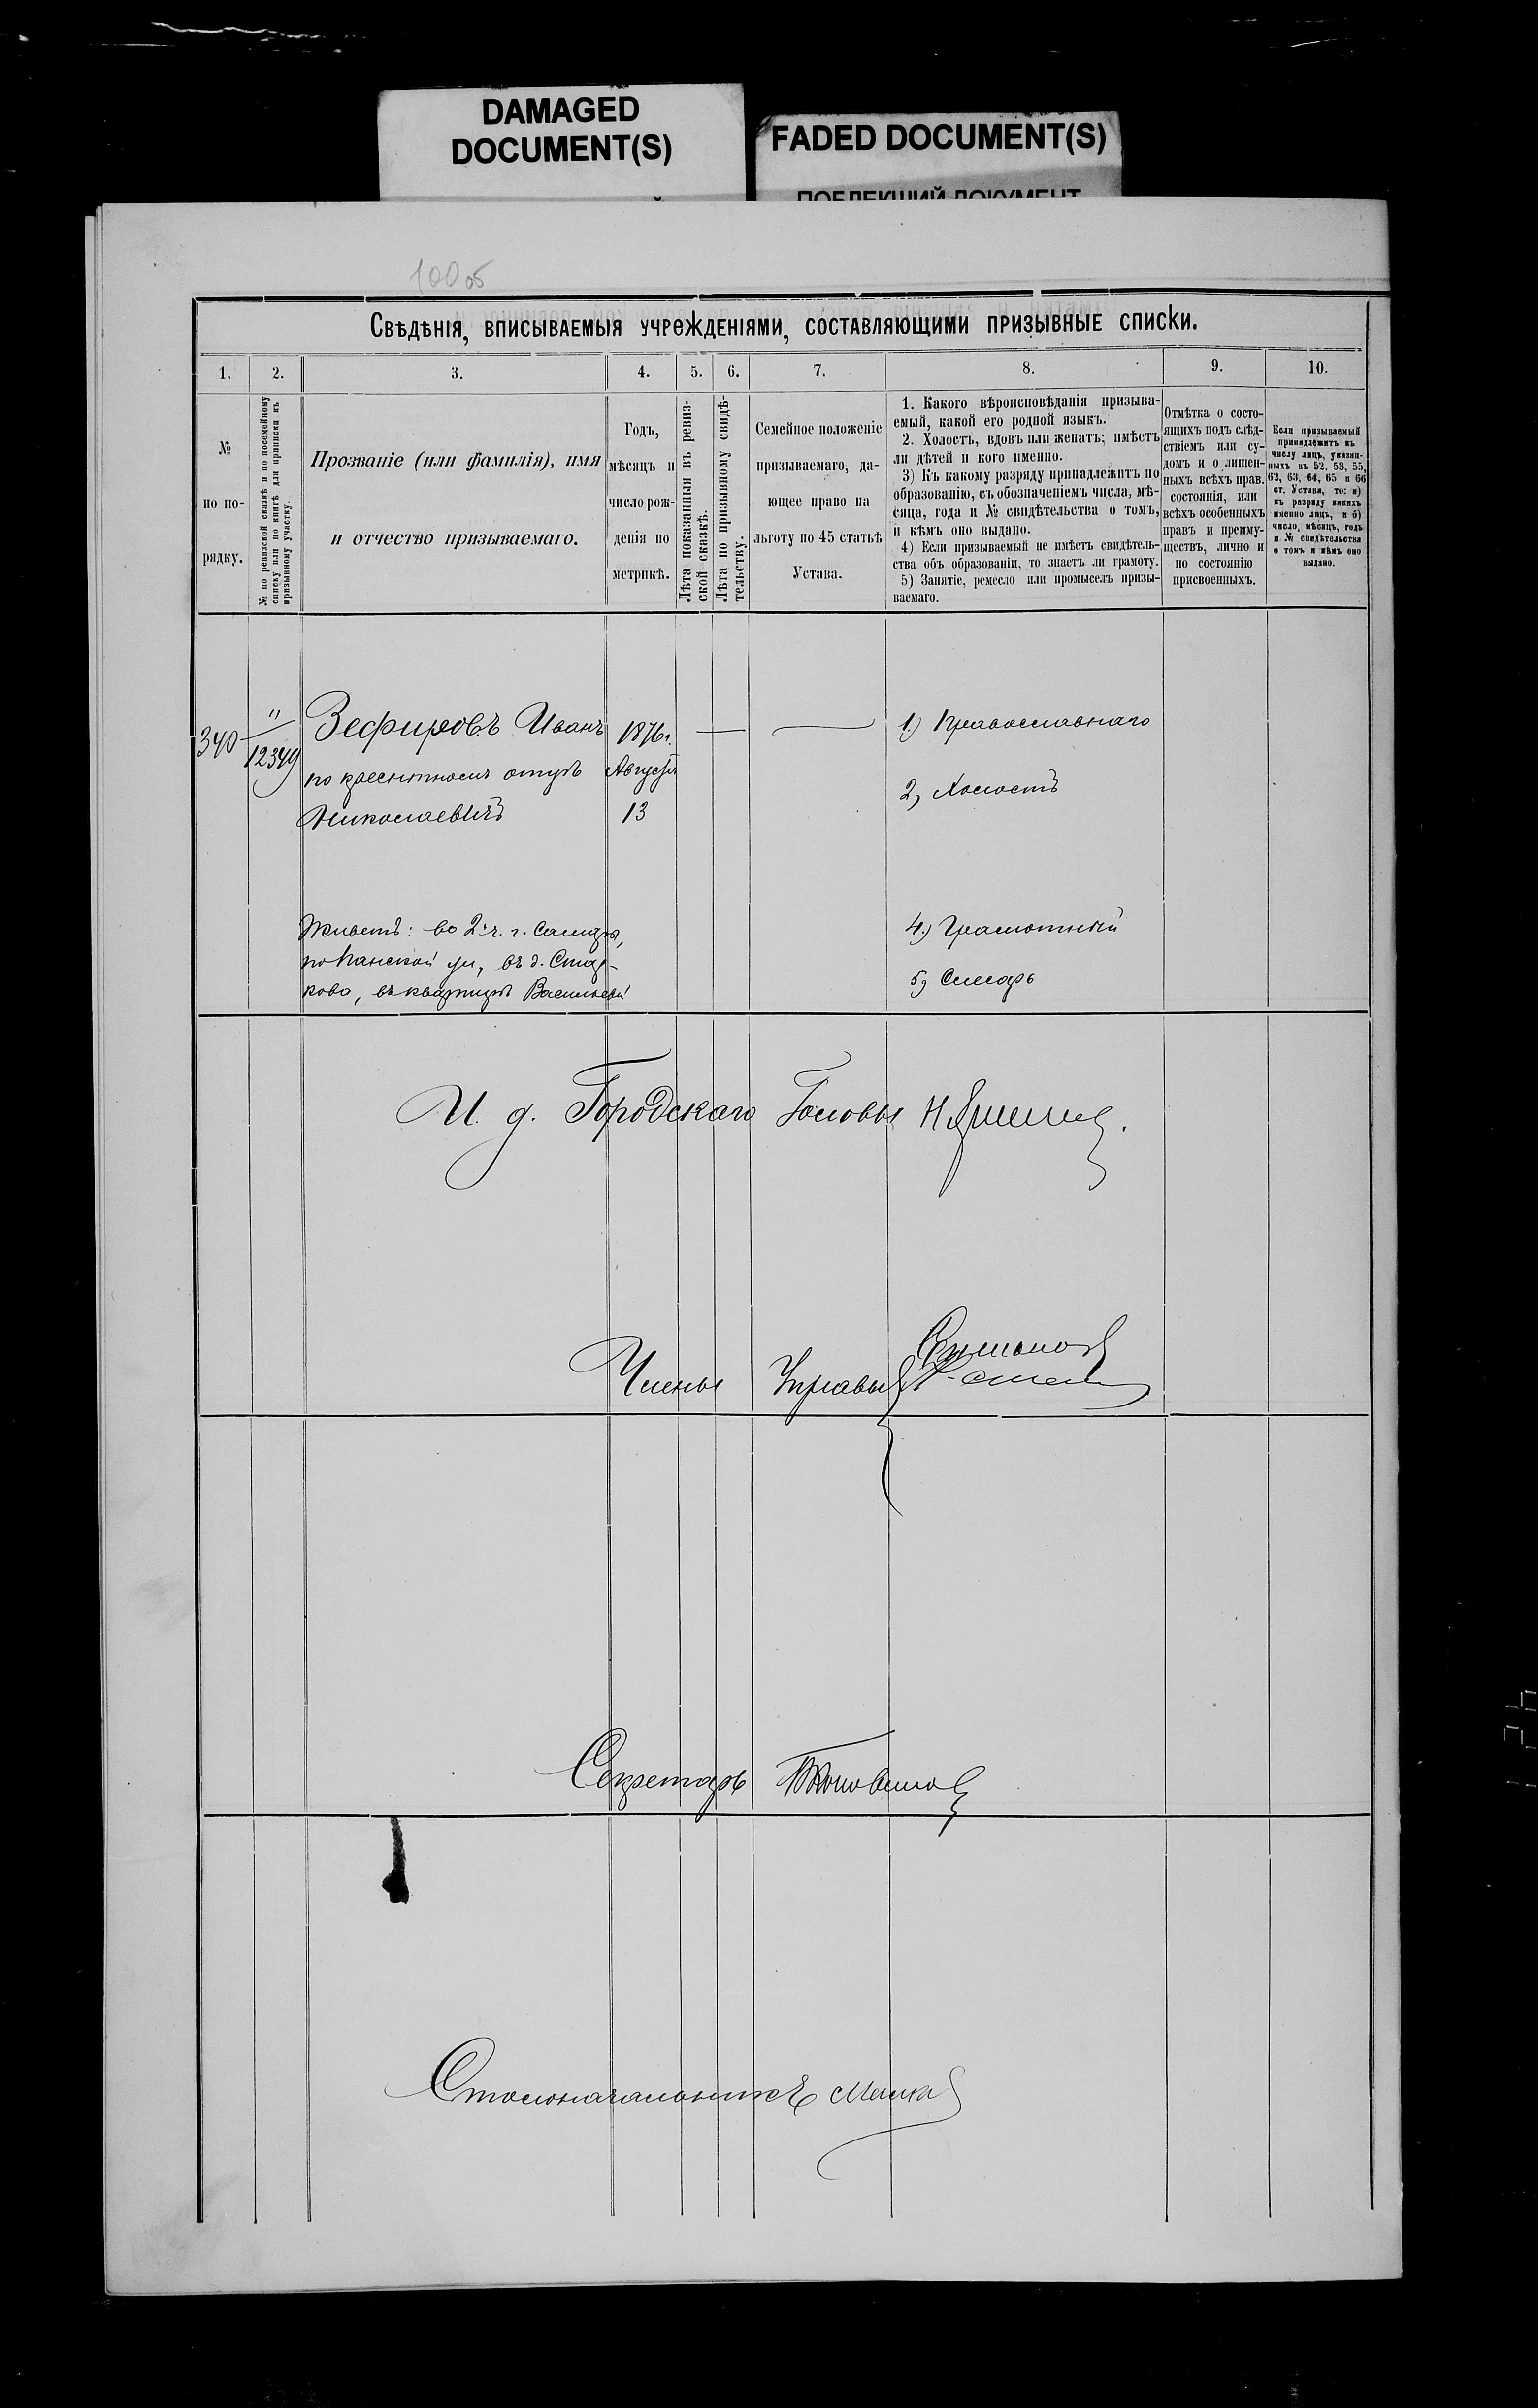 DAMAGED
DOCUMENT(S)
FADED DOCUMENT(S)
ПОБЛЕКШИЙ ДОКУМЕНТ
100 об
Свѣдѣнія, вписываемыя учрежденіями, составляющими призывные списки.
1. 2. 3. 4. 5. 6. 7. 8. 9. 10.
№
по по-
рядку.
№ по ревизской сказкѣ и по посемейному
списку или по книгѣ для приписки къ
призывному участку.
Прозваніе (или фамилія), имя
и отчество призываемаго.
Годъ,
мѣсяцъ и
число рож-
денія по
метрикѣ.
Лѣта показанныя въ ревиз-
ской сказкѣ.
Лѣта по призывному свидѣ-
тельству.
Семейное положеніе
призываемаго, да-
ющее право на
льготу по 45 статьѣ
Устава.
1. Какого вѣроисповѣданія призыва-
емый, какой его родной языкъ.
2. Холостъ, вдовъ или женатъ; имѣетъ
ли дѣтей и кого именно.
3) Къ какому разряду принадлежитъ по
образованію, съ обозначеніемъ числа, мѣ-
сяца, года и № свидѣтельства о томъ,
и кѣмъ оно выдано.
4) Если призываемый не имѣетъ свидѣтель-
ства объ образованіи, то знаетъ ли грамоту.
5) Занятіе, ремесло или промыселъ призы-
ваемаго.
Отмѣтка о состо-
ящихъ подъ слѣд-
ствіемъ или су-
домъ и о лишен-
ныхъ всѣхъ прав.
состоянія, или
всѣхъ особенныхъ
правъ и преиму-
ществъ, лично и
по состоянію
присвоенныхъ.
Если призываемый
принадлежитъ къ
числу лицъ, указан-
ныхъ въ 52, 53, 55,
62, 63, 64, 65 и 66
ст. Устава, то: а)
къ разряду какихъ
именно лицъ, и б)
число, мѣсяцъ, годъ
и № свидѣтельства
о томъ и кѣмъ оно
выдано.
340
"
12349
Зефировъ Иванъ
по крестному отцу
Николаевичъ
1876 г.
Августа
13
1) Православнаго
2) Холостъ
Живетъ: во 2 ч. г. Самары,
по Панской ул, въ д. Стар-
кова, въ квартирѣ Васильевой
4) Грамотный
5) Слесарь
И. д. Городскаго Головы Н
Члены Управы
Секретарь
Столоначальникъ